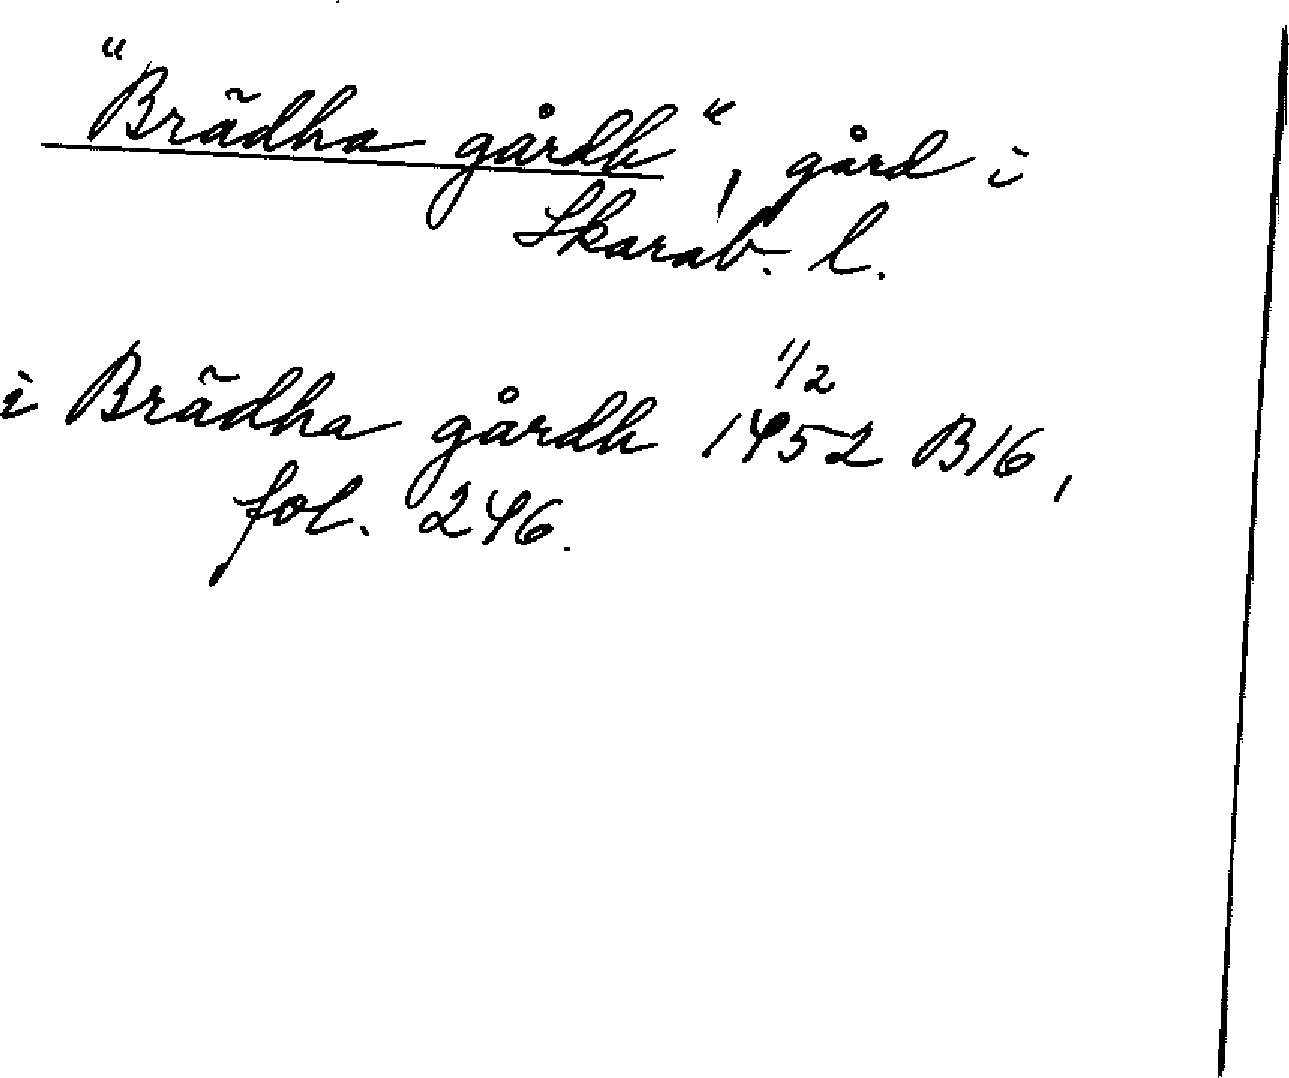 "Brädha gårdh", gård i
Skarab. l.
i Brädha gårdh 1/2
1452 B16,
fol. 246.